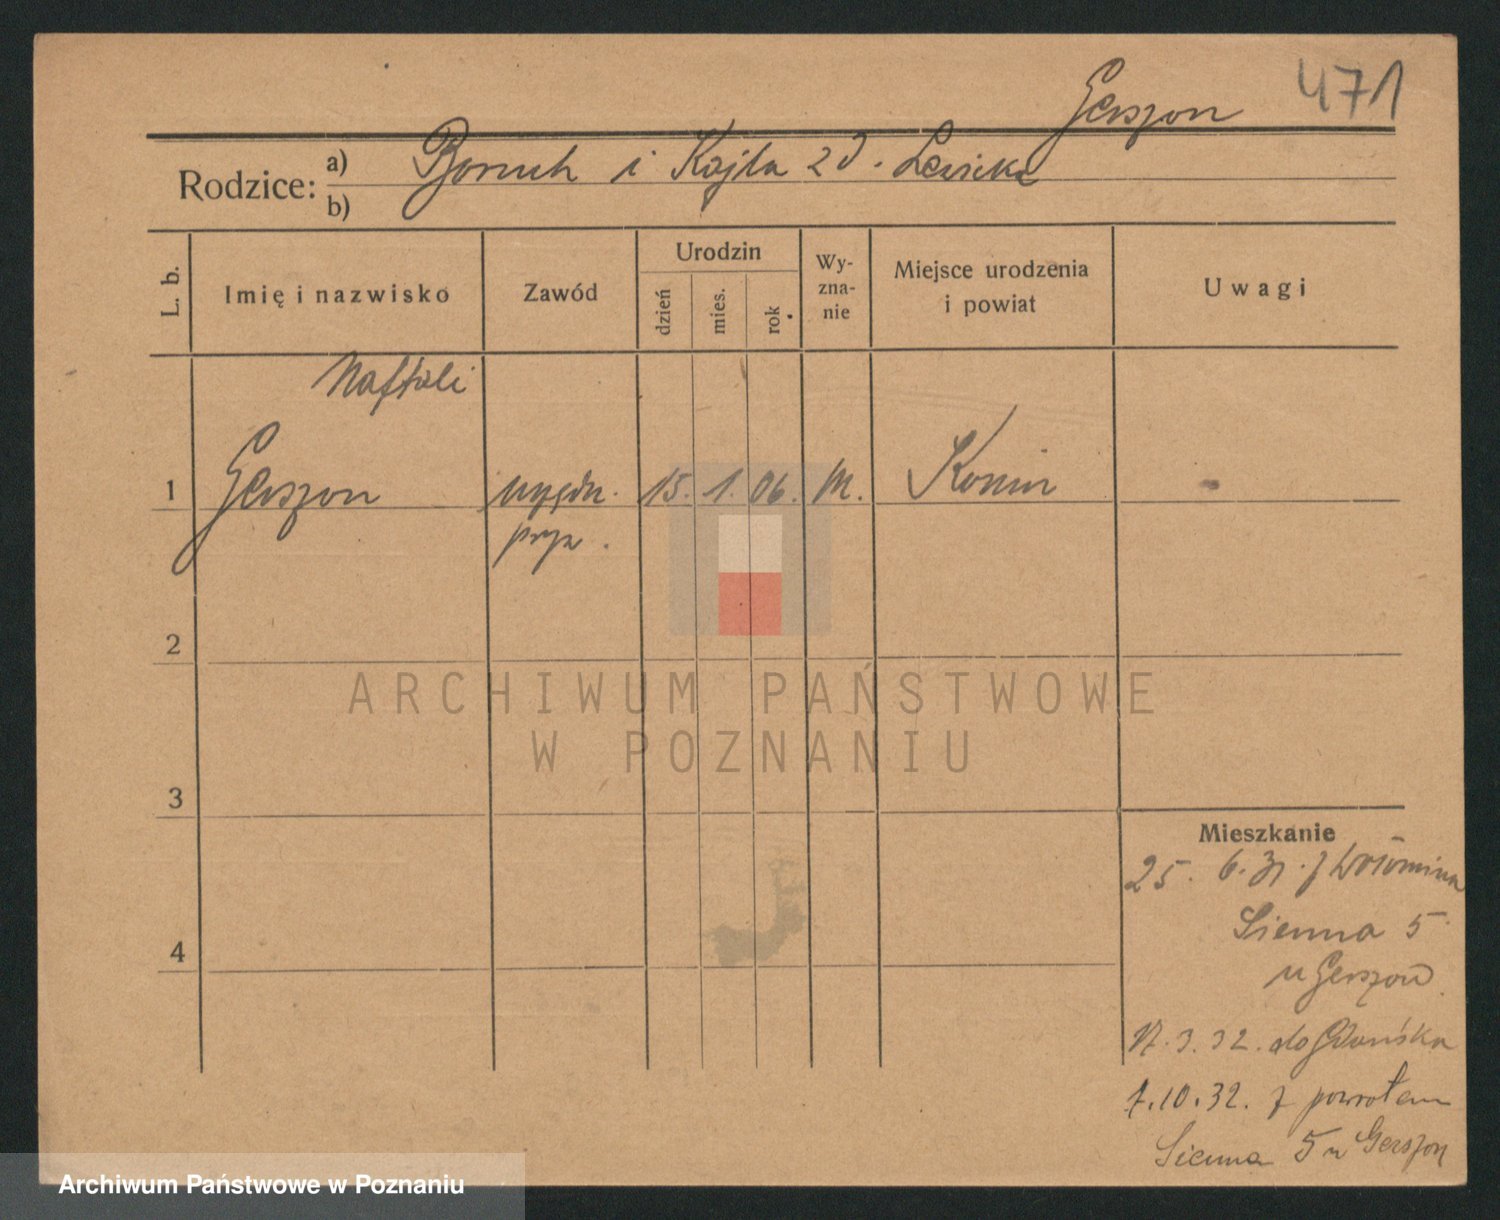 Gerszon 471
Rodzice: a) Boruch i Kajla z d. Lewicka
b)
L. b.
Imię i nazwisko
Zawód
Urodzin
dzień
mies.
rok
Wy-
zna-
nie
Miejsce urodzenia
i powiat
Uwagi
Naftali
1 Gerszon urzędn. 15. 1. 06. M. Konin
pryw.
2
3
4
ARCHIWUM PAŃSTWOWE
W POZNANIU
Mieszkanie
25. 6. 31. z Wołomina
Sienna 5
u Gerszon
17.3.32. do Gdańska
7.10.32. z powrotem
Sienna 5 u Gerszon
Archiwum Państwowe w Poznaniu